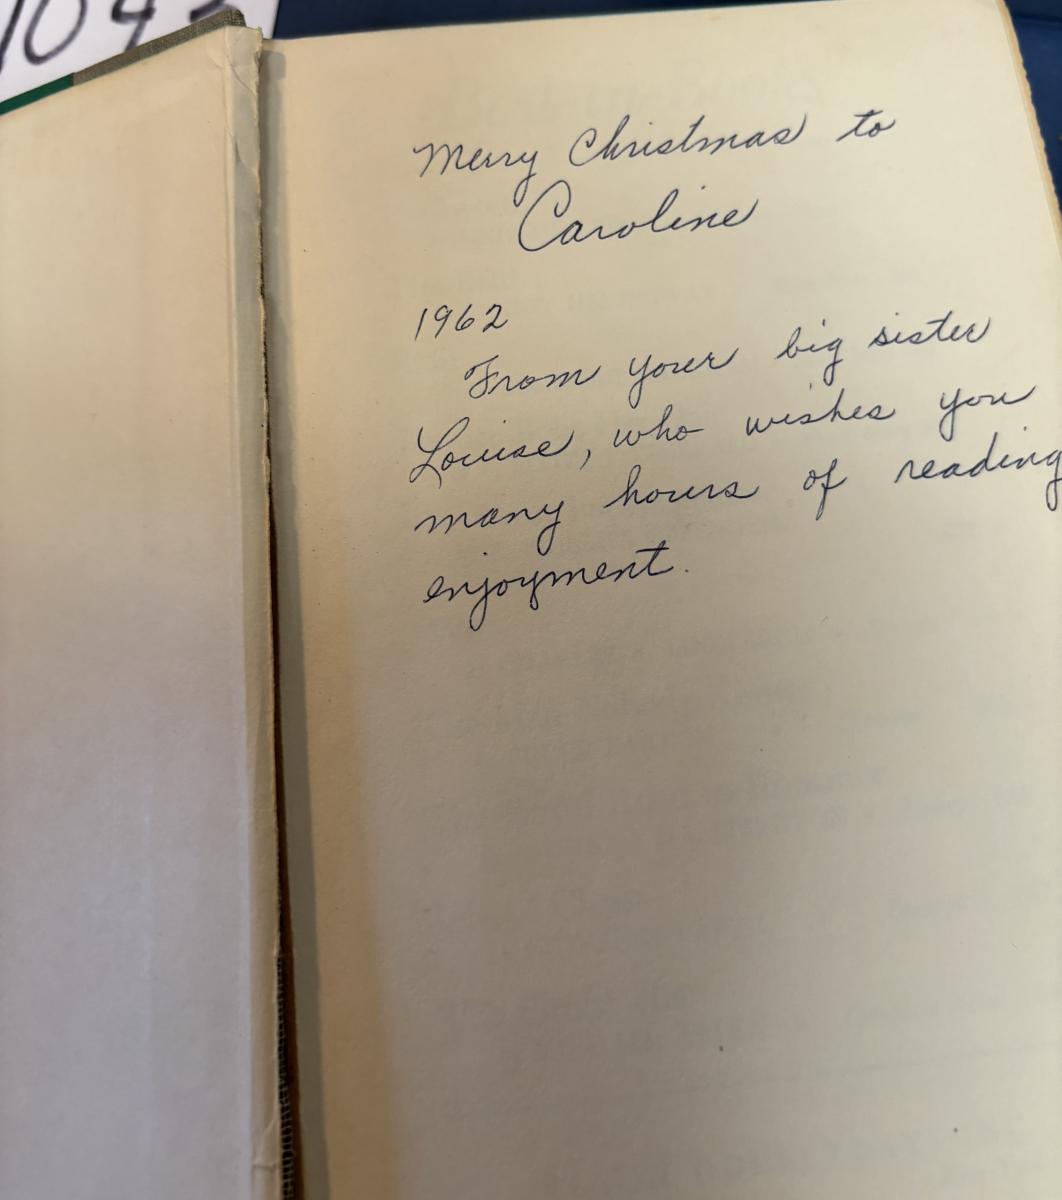 Merry Christmas to
Caroline
1962
From your big sister
Louise, who wishes you
many hours of reading
enjoyment.